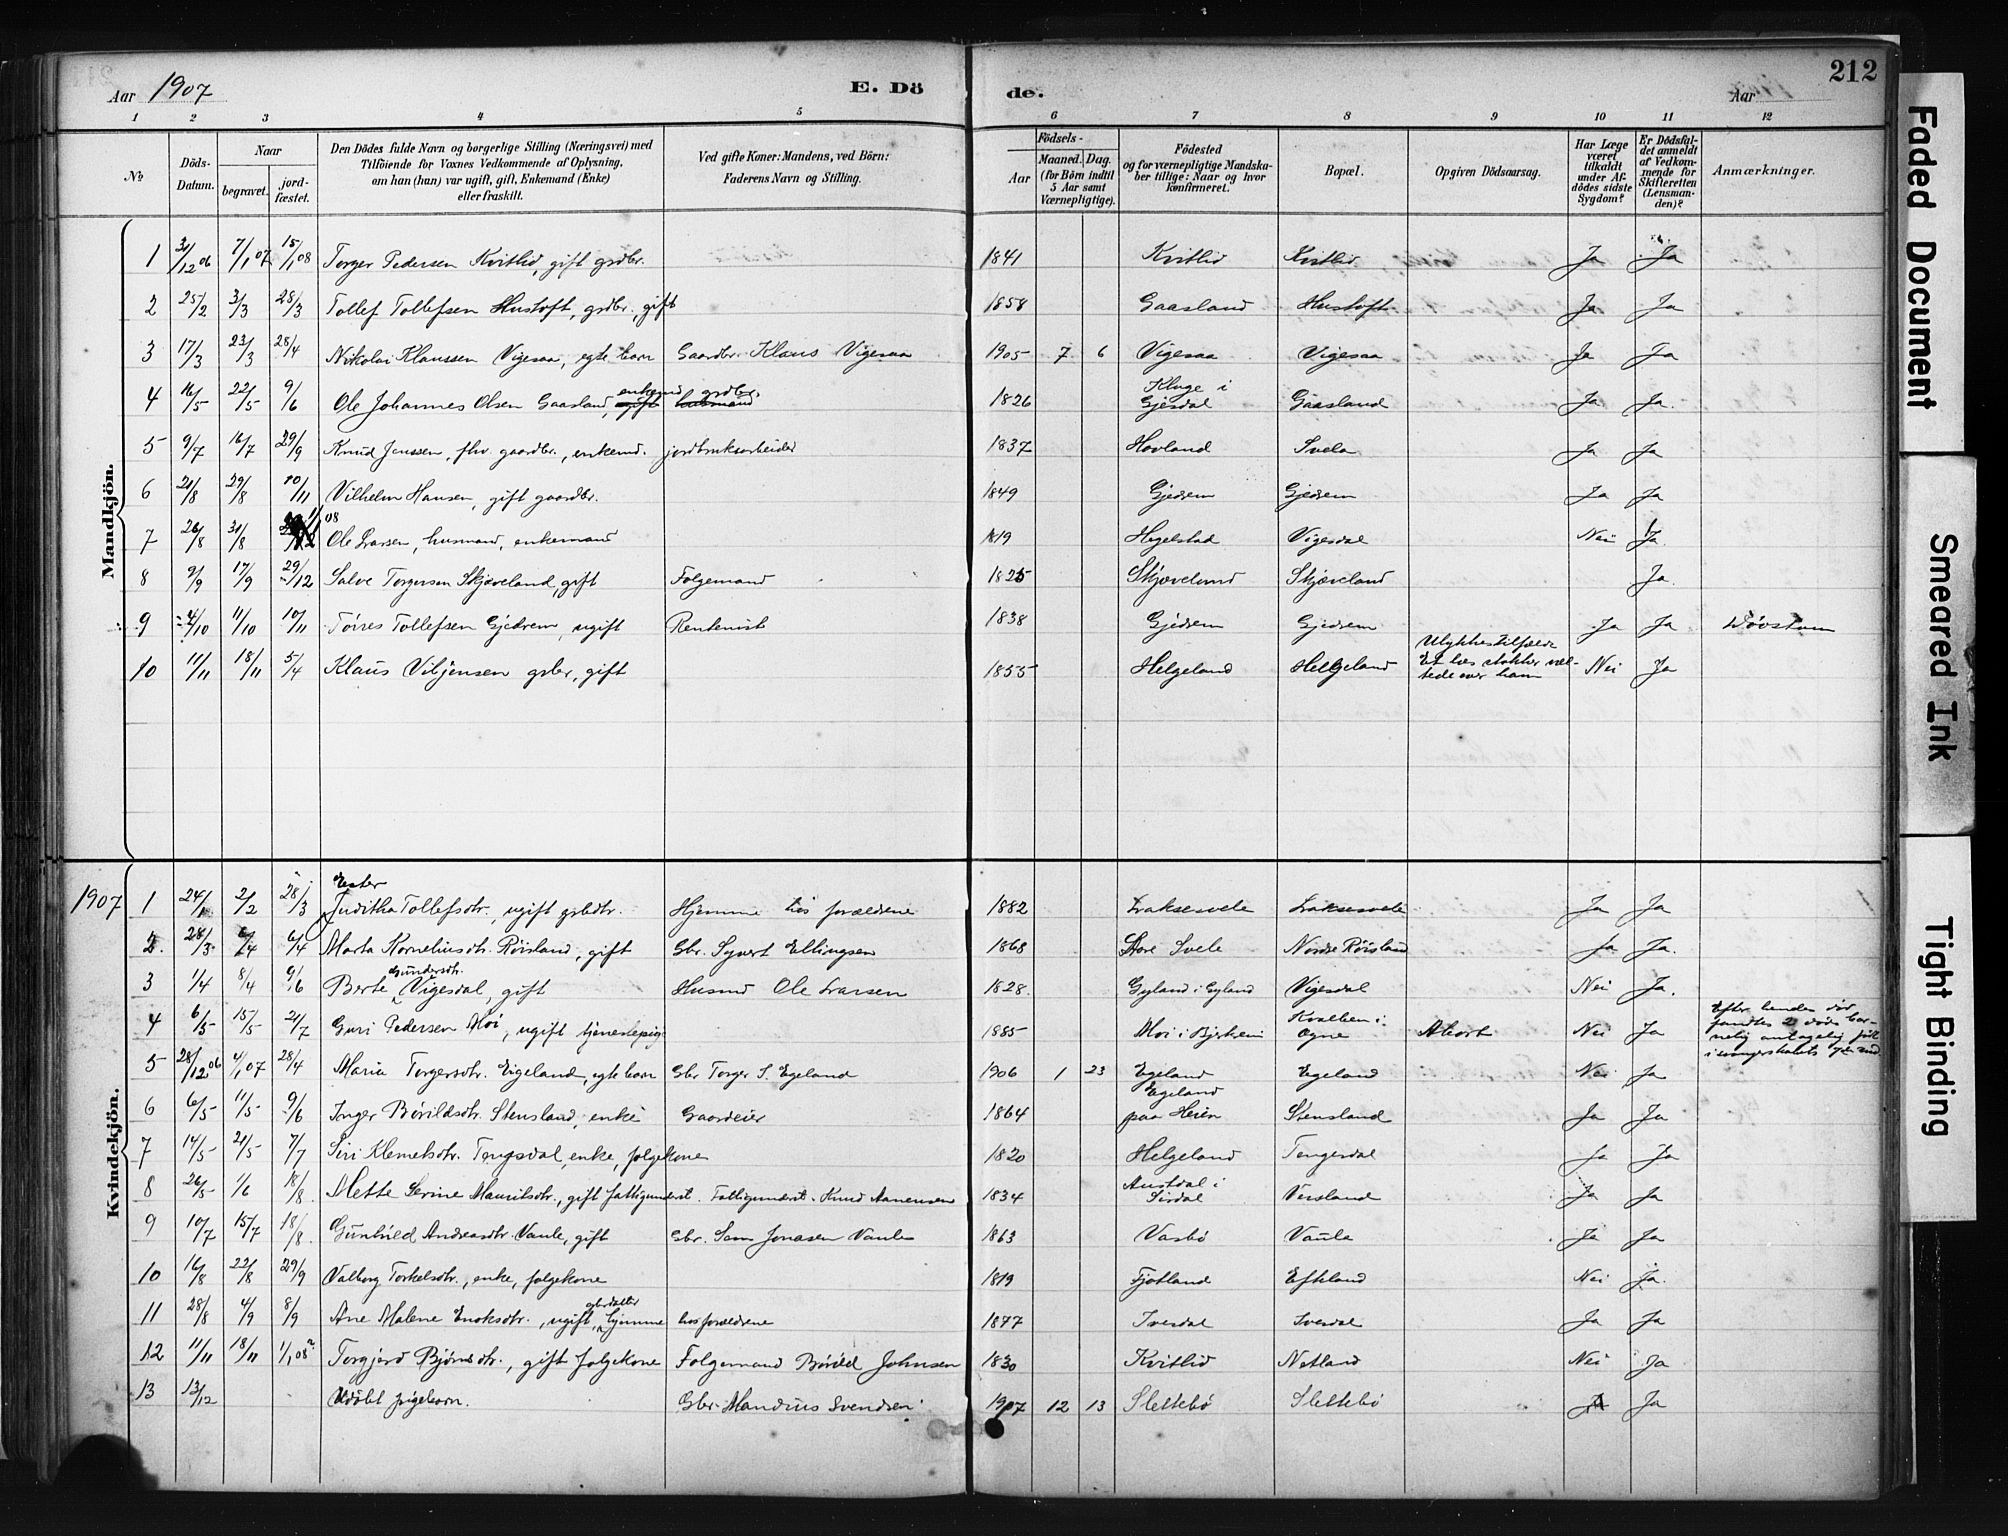 Aar 1907 E. Dö de. Aar 212
1 2 3 4 5 6 7 8 9 10 11 12
№ Döds-Datum. Naar begravet. jord-fæstet. Den Dödes fulde Navn og borgerlige Stilling (Næringsvei) med Tilföiende for Voxnes Vedkommende af Oplysning, om han (hun) var ugift, gift, Enkemand (Enke) eller fraskilt. Ved gifte Koner: Mandens, ved Börn: Faderens Navn og Stilling. Födsels- Aar Maaned. Dag. (for Börn indtil 5 Aar samt Værnepligtige). Födested og for værnepligtige Mandskaber tillige: Naar og hvor konfirmeret. Bopæl. Opgiven Dödsaarsag. Har Læge været tilkaldt under Afdödes sidste Sygdom? Er Dödsfaldet anmeldt af Vedkommende for Skifteretten (Lensmanden)? Anmærkninger.
Mandkjön.
1 31/12 06 7/1 07 15/1 08 Torger Pedersen Kvitlid, gift grdbr. 1841 Kvitlid Kvitlid Ja Ja
2 25/2 3/3 28/3 Tollef Tollefsen Hustoft, grdbr., gift 1858 Gaasland Hustoft Ja Ja
3 17/3 23/3 28/4 Nikolai Klaussen Vigesaa, egte barn Gaardbr. Klaus Vigesaa 1905 7 6 Vigesaa Vigesaa Ja Ja
4 16/5 22/5 9/6 Ole Johannes Olsen Gaasland, enkemd grdbr. 1826 Kluge i Gjesdal Gaasland Ja Ja.
5 9/7 16/7 29/9 Knud Jonssen, fhv. gaardbr., enkemd. jordbruksarbeider 1837 Hovland Svela Ja Ja
6 21/8 29/8 10/11 Vilhelm Hansen, gift gaardbr. 1849 Gjedrem Gjedrem Ja Ja
7 26/8 31/8 08 Ole Larsen, husmand, enkemand 1819 Hegelstad Vigesdal Nei Ja
8 9/9 17/9 29/12 Salve Torgersen Skjæveland, gift Folgemand 1825 Skjæveland Skjæveland Ja.
9 4/10 11/10 10/11 Töires Tollefsen Gjedrem, ugift Rentenist 1838 Gjedrem Gjedrem Ja Ja Dövstum
10 11/11 18/11 5/4 Klaus Viljensen gbr, gift 1855 Helgeland Helgeland Ulykkestilfælde Et læs stokker væltede over ham Nei Ja
Kvindekjön.
1907 1 24/1 2/2 28/3 Ester Juditha Tollefsdtr., ugift grbdtr. Hjemme hos forældrene 1882 Laksesvele Laksesvele Ja Ja
2. 28/3 6/4 6/4 Marta Korneliusdtr. Röisland, gift Gbr. Syvert Ellingsen 1868 Store Svele Nordre Röisland Ja Ja.
3 1/4 8/4 9/6 Berte Gundersdtr. Vigesdal, gift Husmd Ole Larsen 1828. Gyland i Gyland Vigesdal Nei Ja.
4 6/5 15/5 21/7 Guri Pedersen Moi, ugift tjenestepig. 1885 Moi i Bjerkreim Kvalbein i Ogne Abort Nei Ja Efter hendes död fandtes 2 döde bar-
5 28/12 06 4/1 07 28/4 Maria Torgersdtr. Eigeland, egte barn Gbr Torger S. Egeland 1906 1 23 Egeland Egeland Nei Ja
6 6/5 11/5 9/6 Inger Börildsdtr. Stensland, enke Gaardeier 1864 Egeland paa Heien Stensland Ja Ja
7 14/5 21/5 7/7 Siri Klemetsdtr. Tengsdal, enke, folgekone 1820 Helgeland Tengesdal Ja Ja
8 26/5 1/6 18/8. Mette Serine Mauritsdtr., gift fattigunderst. Fattigunderst. Knud Aanensen 1834 Austdal i Sirdal Versland Ja Ja
9 10/7 15/7 18/8. Gunhild Andreasdtr. Vaule, gift Gbr. Sam Jonasen Vaule 1863 Vasbö Vaula Ja Ja
10 16/8 22/8 29/9 Valborg Torkelsdtr., enke, folgekone 1819 Fjotland Efteland Nei Ja.
11 28/8 4/9 8/9 Ane Malene Enoksdtr., ugift, gbrdatter hjemme hos forældrene 1877 Ivesdal Ivesdal Ja Ja
12 11/11 18/11 1/1 08 Torgjerd Björnsdtr., gift folgekone Folgemand Böröld Johnsen 1830 Kvitlid Netland Nei Ja
13 13/12 Udöbt pigebarn. Gbr. Mandius Svendsen 1907 12 13 Slettebö Slettebö Ja Ja
Faded Document
Smeared Ink
Tight Binding